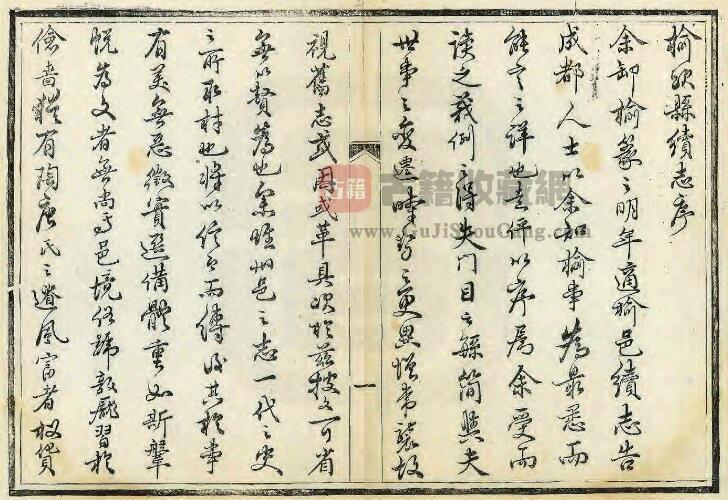 榆次縣續志序
余卸榆篆之明年適榆邑續志告
成都人士以余知榆事為最悉而
能言之詳也走伻以序屬余受而
讀之義例之得失門目之繁簡與夫
世事之變遷時勢之更異增舊襲故
視舊志或因或革具次於茲披文可省
無以贅為也余惟州邑之志一代之史
之所取材也將以信今而傳後其於事
有美無惡徵實選備體重如斯鞶
帨為文者無尚焉邑境俗號敦龐習於
儉嗇猶有陶唐氏之遺風富者擬貨
古籍
古籍收藏網
www.GuJiShouCang.com
一